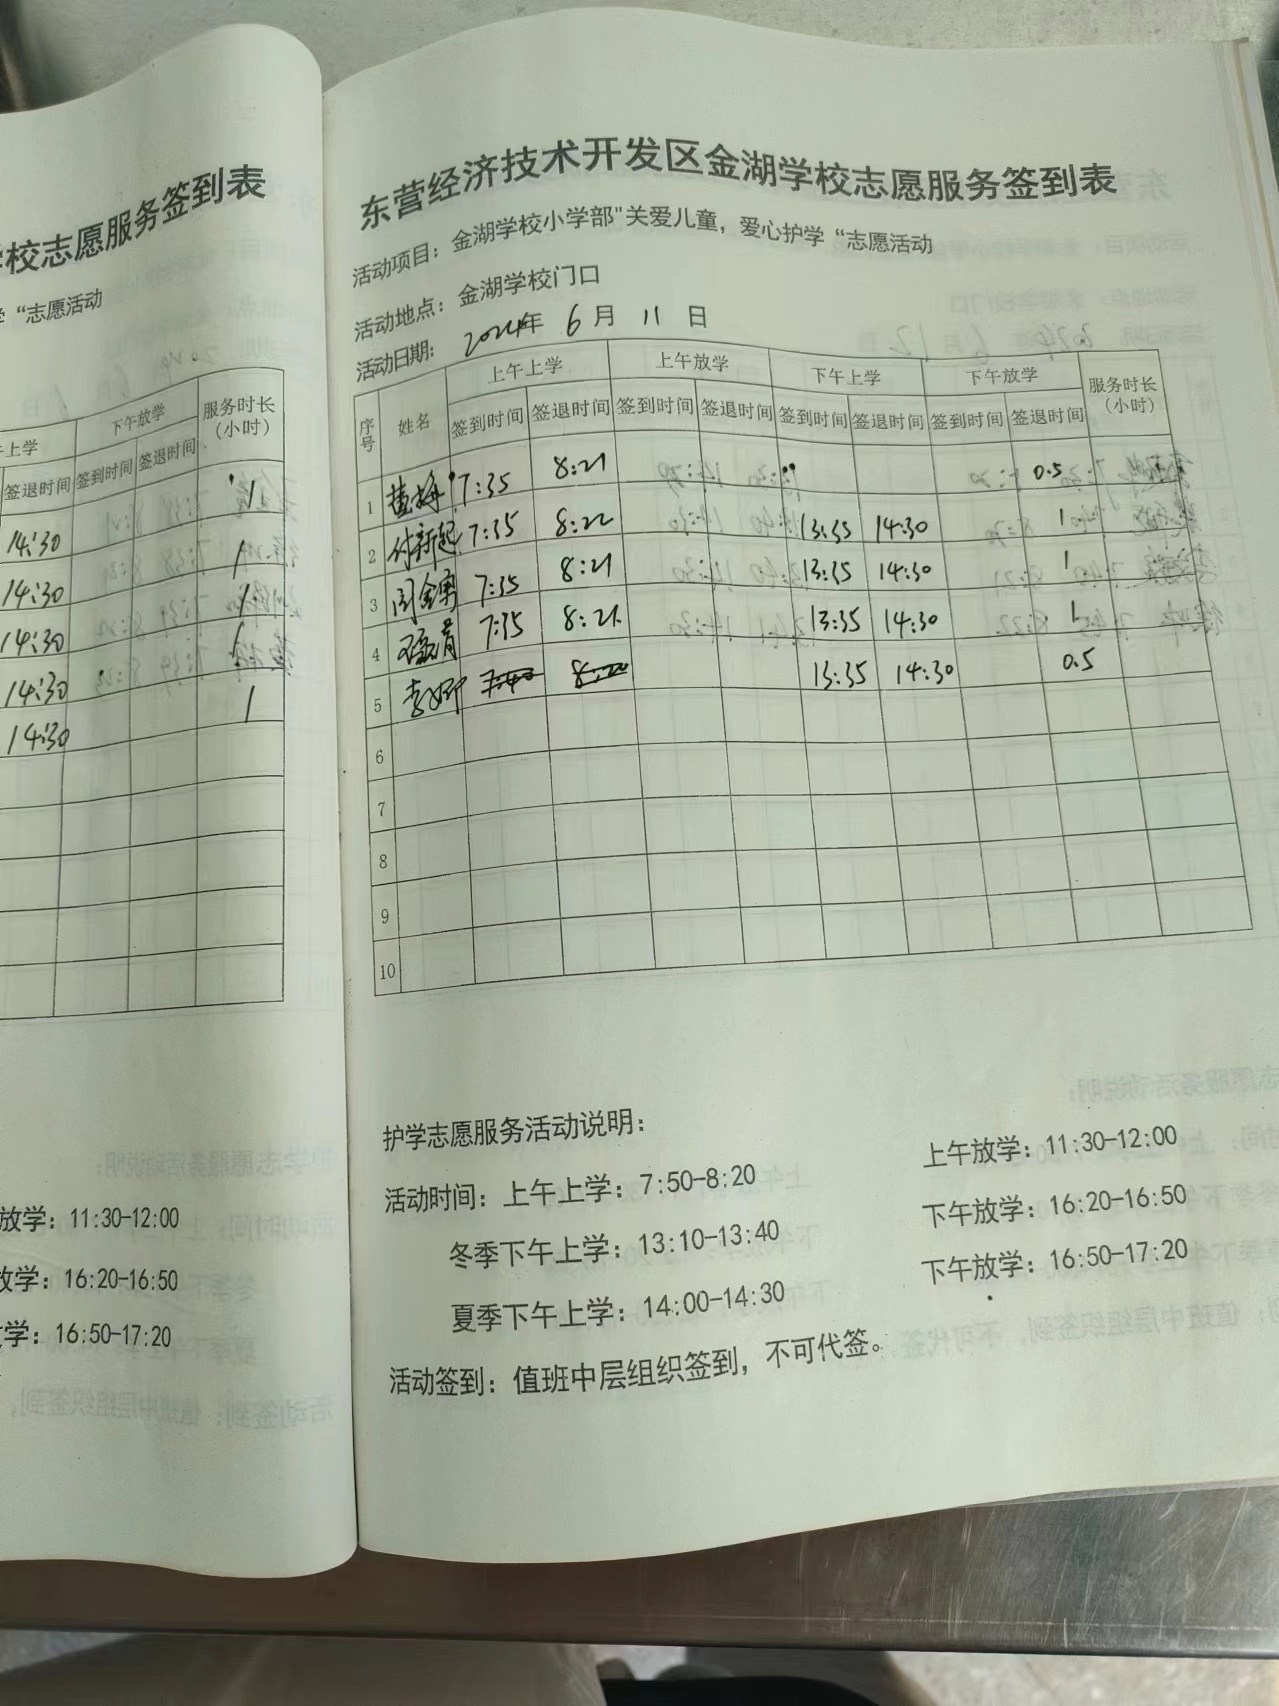 校志愿服务签到表
“志愿活动
上学
下午放学
服务时长
(小时)
签退时间 签到时间 签退时间
14:30 1
14:30 1
14:30 1
14:30 1
14:30 1
放学：11:30-12:00
放学：16:20-16:50
学：16:50-17:20
东营经济技术开发区金湖学校志愿服务签到表
活动项目：金湖学校小学部"关爱儿童，爱心护学“志愿活动
活动地点：金湖学校门口
活动日期：2024年 6 月 11 日
序号 姓名 上午上学 上午放学 下午上学 下午放学 服务时长
(小时)
签到时间 签退时间 签到时间 签退时间 签到时间 签退时间 签到时间 签退时间
1 黄梅 7:35 8:21 0.5
2 付新起 7:35 8:22 13:35 14:30 1
3 周金勇 7:35 8:21 13:35 14:30 1
4 7:35 8:21 13:35 14:30 1
5 13:35 14:30 0.5
6
7
8
9
10
护学志愿服务活动说明：
活动时间：上午上学：7:50-8:20 上午放学：11:30-12:00
冬季下午上学：13:10-13:40 下午放学：16:20-16:50
夏季下午上学：14:00-14:30 下午放学：16:50-17:20
活动签到：值班中层组织签到，不可代签。